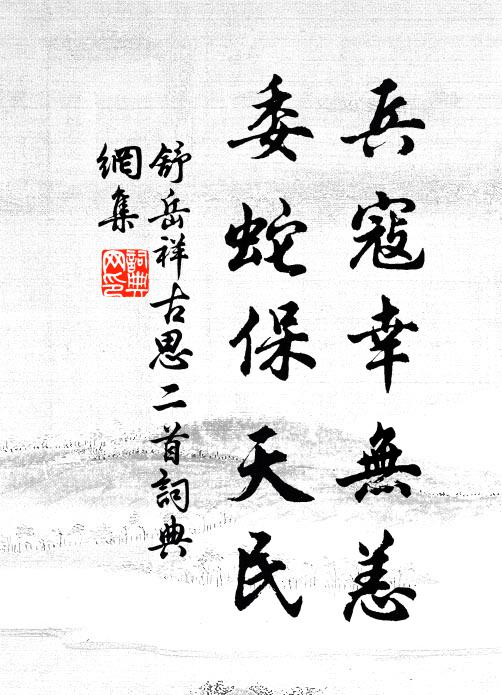 兵寇幸無恙
委蛇保天民
舒岳祥古思二首詞典
網集
詞典
网印